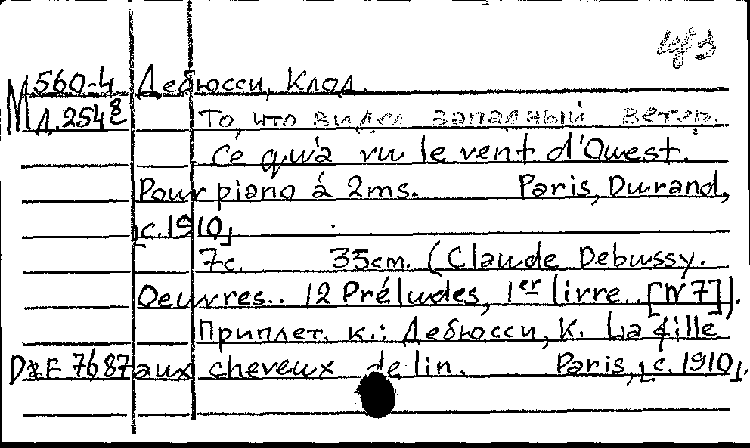 М 560-4 Дебюсси, Клод.
Д.254
То, что видел западный ветер.
Ce qu'a vu le vent d'Ouest.
Pour piano à 2ms. Paris, Durand,
[c.1910]
7с. 35cm. (Claude Debussy.
Oeuvres.. 12 Préludes, 1er livre.. [N°7]).
Приплет. к.: Дебюсси, К. La fille
7687 aux cheveux de lin. Paris, [c.1910].